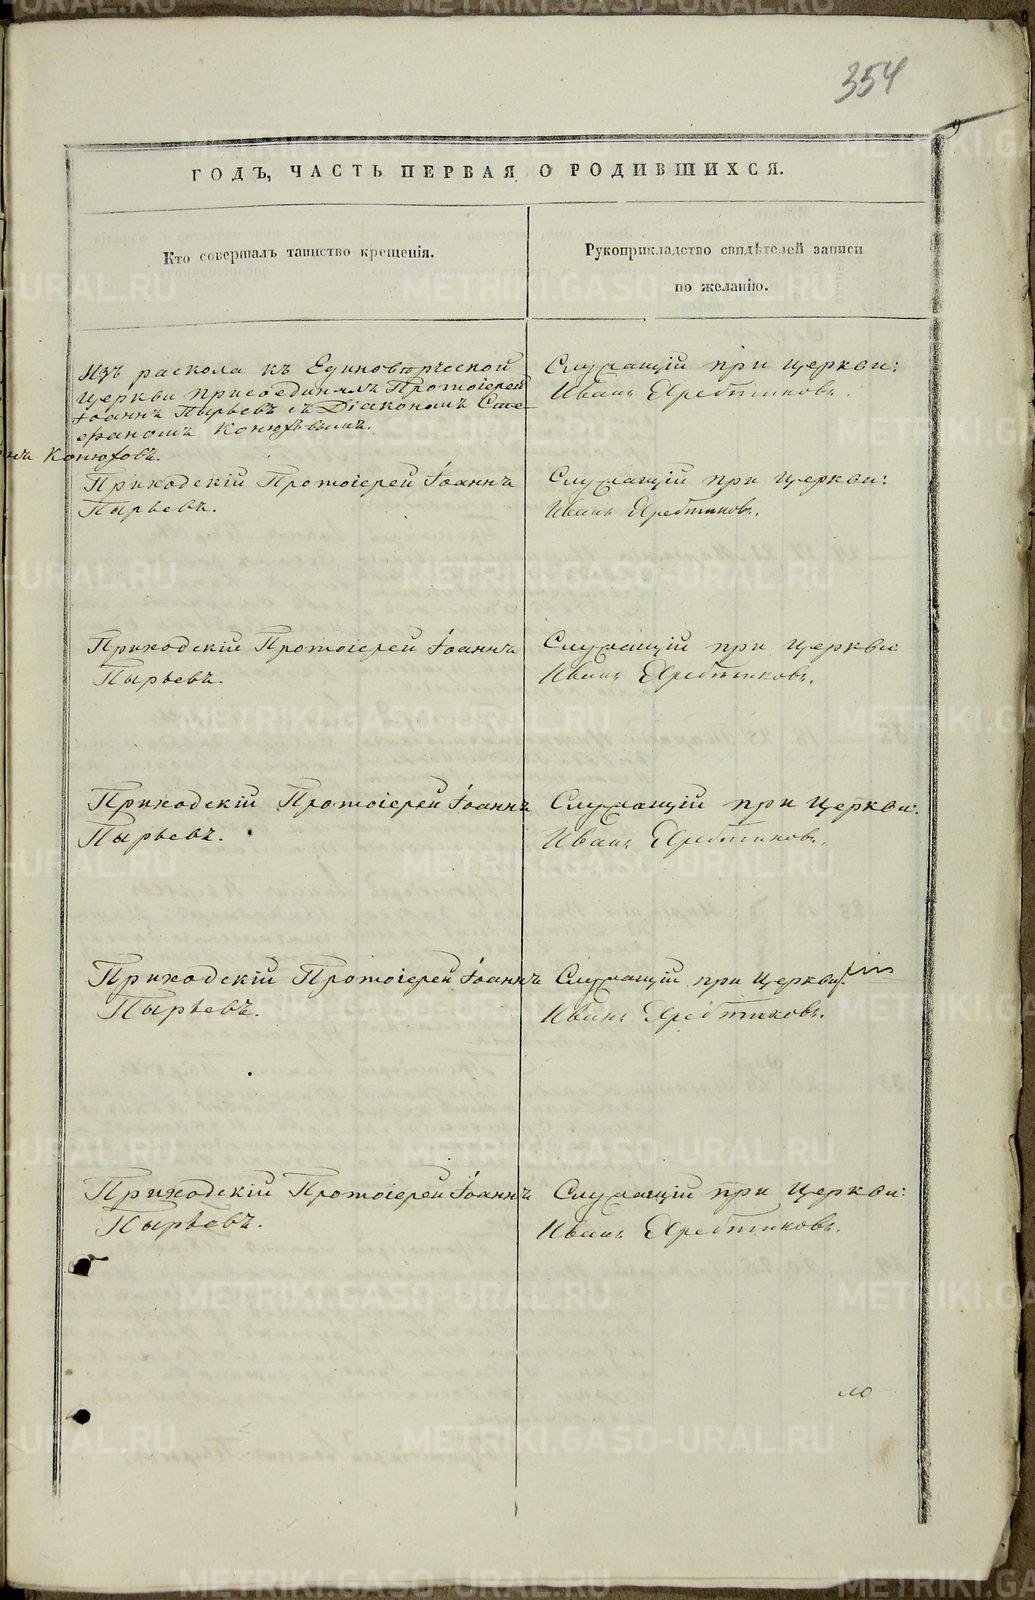 354
9
ГОДЪ, ЧАСТЬ ПЕРВАЯ О РОДИВШИХСЯ.
Кто совершалъ таинство крещенія.
Рукоприкладство свидѣтелей записи
по желанію.
Изъ раскола къ Единовѣрческой
церкви присоединялъ Протоіерей
Іоаннъ Пырьевъ съ Діакономъ Сте-
фаномъ Конюховымъ.
Конюховъ.
Служащій при церкви:
Иванъ
Приходскій Протоіерей Іоаннъ
Пырьевъ.
Служащій при церкви:
Иванъ
Приходскій Протоіерей Іоаннъ
Пырьевъ.
Служащій при церкви:
Иванъ
Приходскій Протоіерей Іоаннъ
Пырьевъ.
Служащій при церкви:
Иванъ
Приходскій Протоіерей Іоаннъ
Пырьевъ.
Служащій при церкви
Иванъ
Приходскій Протоіерей Іоаннъ
Пырьевъ.
Служащій при церкви:
Иванъ
METRIKI.GASO-URAL.RU